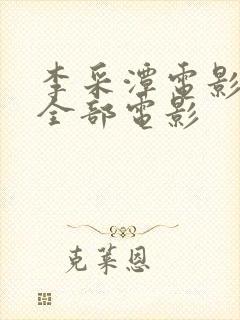 李采潭電影
全部電影
克萊恩